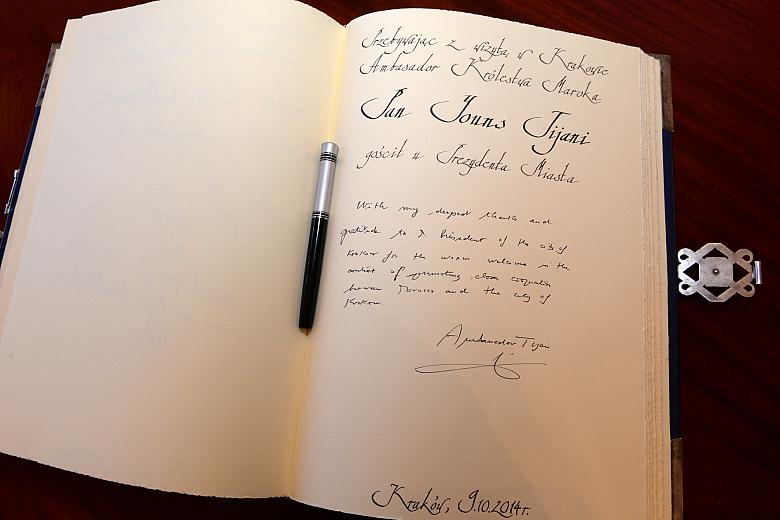 Przebywając z wizytą w Krakowie
Ambasador Królestwa Maroka
Pan Youns Tijani
gościł u Prezydenta Miasta
With my deepest thanks and
gratitude to President of the city of
Krakow for the warm welcome in the
context of promoting close cooperation
between Morocco and the city of
Krakow
Ambassador Tijani
Kraków, 9.10.2014r.